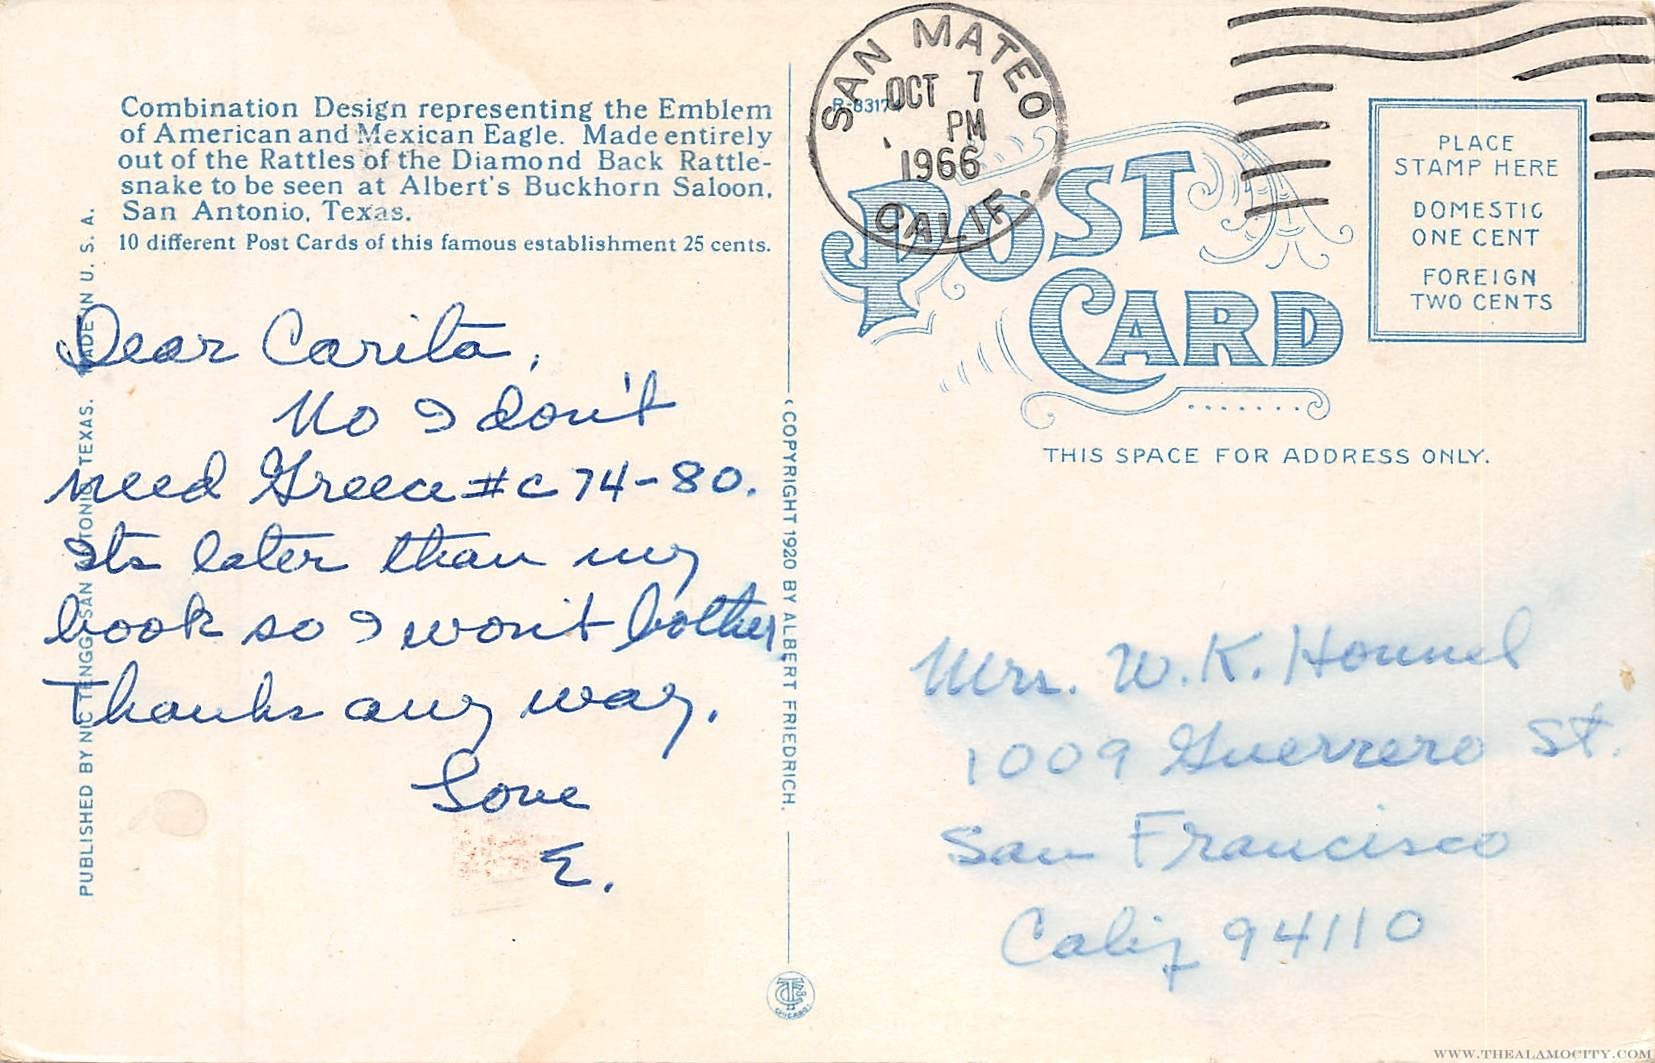 Combination Design representing the Emblem
of American and Mexican Eagle. Made entirely
out of the Rattles of the Diamond Back Rattle-
snake to be seen at Albert's Buckhorn Saloon,
San Antonio, Texas.
10 different Post Cards of this famous establishment 25 cents.
Dear Carita,
No I don't
need Greece #c 74-80.
Its later than my
book so I won't bother.
Thanks any way.
Love
E.
PUBLISHED BY NIC TENGG, SAN ANTONIO, TEXAS. MADE IN U. S. A.
COPYRIGHT 1920 BY ALBERT FRIEDRICH.
SAN MATEO
OCT 7
PM
1966
CALIF.
POST
CARD
PLACE
STAMP HERE
DOMESTIC
ONE CENT
FOREIGN
TWO CENTS
THIS SPACE FOR ADDRESS ONLY.
Mrs. W. K. Hounel
1009 Guerrero St.
San Francisco
Calif 94110
CHICAGO
WWW.THEALAMOCITY.COM